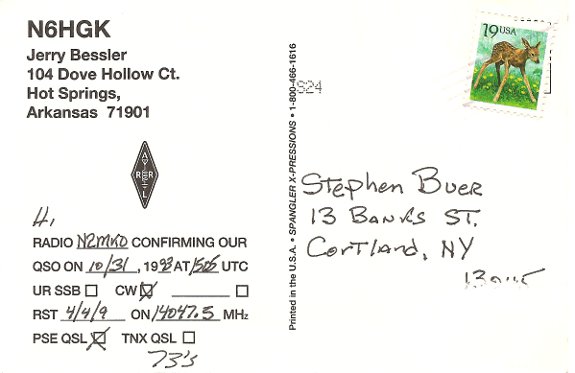 N6HGK
Jerry Bessler
104 Dove Hollow Ct.
Hot Springs,
Arkansas 71901
A
R R
L
Hi,
RADIO N2MKD CONFIRMING OUR
QSO ON 10/31, 1993 AT 1505 UTC
UR SSB CW
RST 4/4/9 ON 14047.5 MHz
PSE QSL TNX QSL
73's
Printed in the U.S.A. • SPANGLER X-PRESSIONS • 1-800-466-1616
S24
19USA
Stephen Buer
13 Banks St.
Cortland, NY
13045